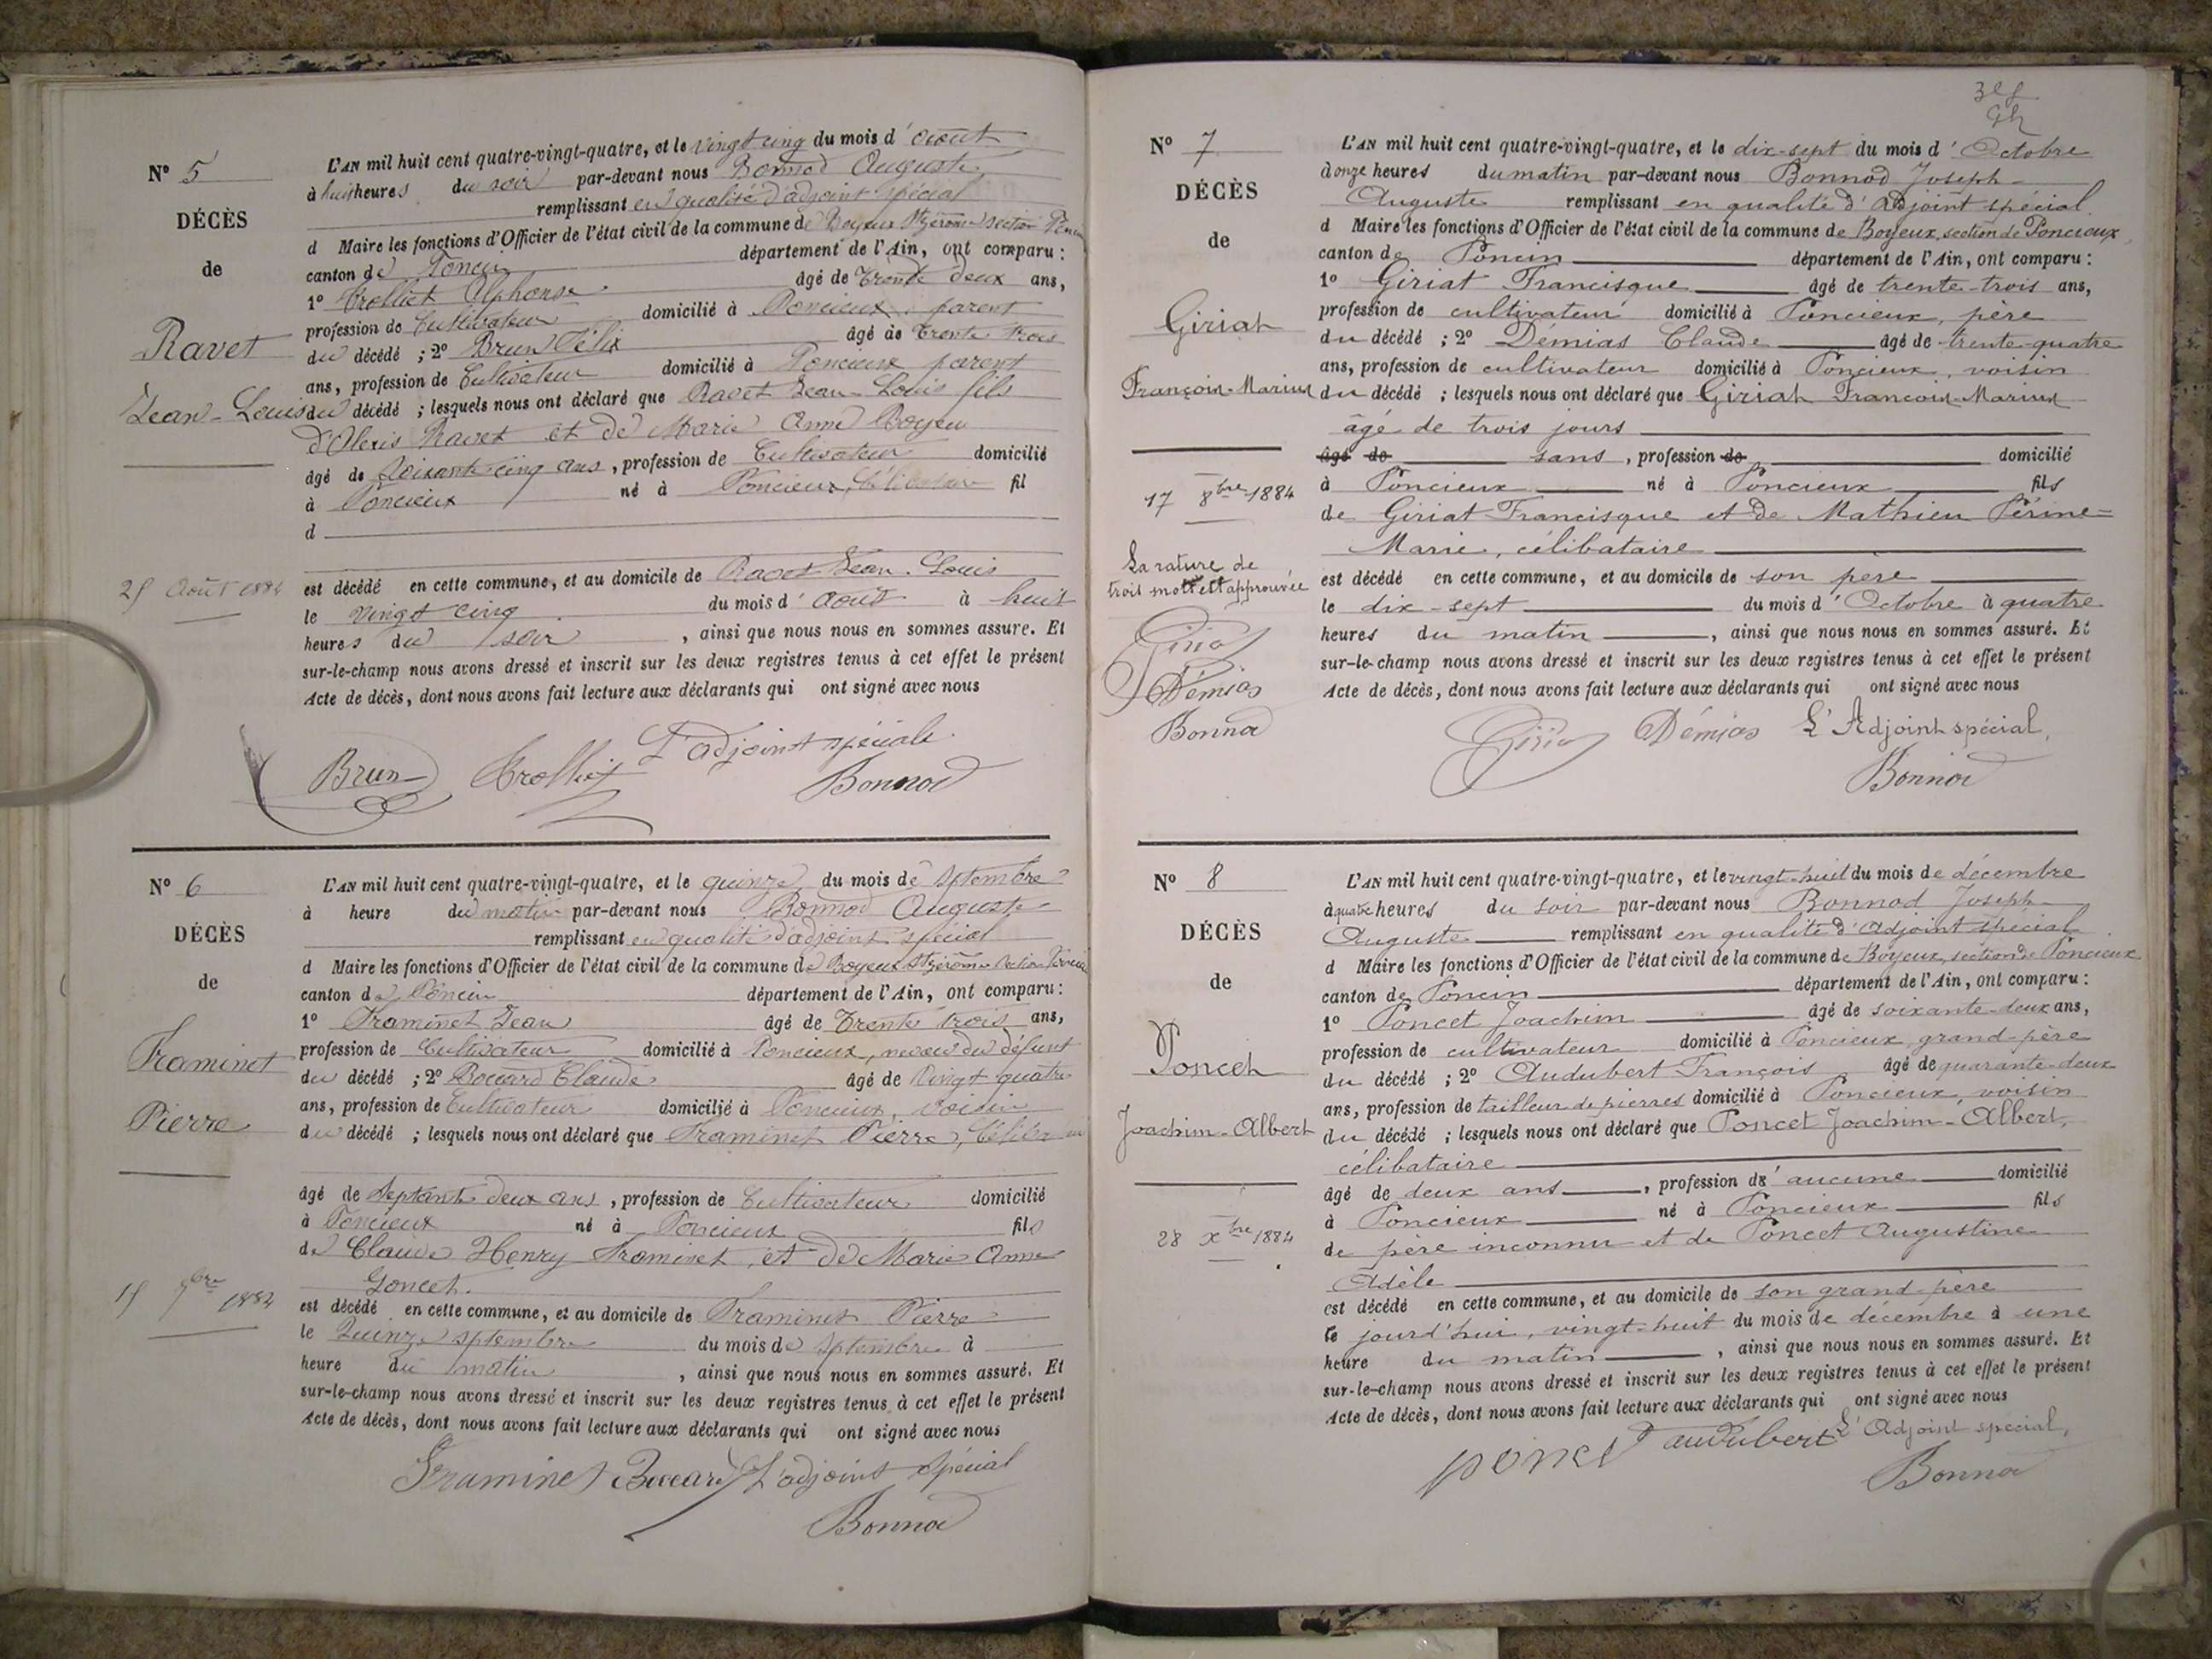 N° 5
DÉCÈS
de
Ravet
Jean-Louis
25 Août 1884
L'AN mil huit cent quatre-vingt-quatre, et le vingt cinq du mois d'Août
à huit heures du soir par-devant nous Bonnod Auguste
remplissant en qualité d'adjoint spécial
d Maire les fonctions d'Officier de l'état civil de la commune de Boyeux St Jérôme section
canton de Poncin département de l'Ain, ont comparu :
1° Trolliet Alphonse âgé de Trente deux ans,
profession de Cultivateur domicilié à Poncieux parent
du décédé ; 2° Brun Félix âgé de Trente trois
ans, profession de Cultivateur domicilié à Poncieux parent
du décédé ; lesquels nous ont déclaré que Ravet Jean-Louis fils
d'Alexis Ravet et de Marie Anne Boyeu
âgé de soixante cinq ans, profession de Cultivateur domicilié
à Poncieux né à Poncieux, Célibataire fil
d
est décédé en cette commune, et au domicile de Ravet Jean-Louis
le vingt cinq du mois d'août à huit
heures du soir, ainsi que nous nous en sommes assuré. Et
sur-le-champ nous avons dressé et inscrit sur les deux registres tenus à cet effet le présent
Acte de décès, dont nous avons fait lecture aux déclarants qui ont signé avec nous
Brun Trolliet L'adjoint spéciale
Bonnod
N° 6
DÉCÈS
de
Framinet
Pierre
15 7bre 1884
L'AN mil huit cent quatre-vingt-quatre, et le quinze du mois de septembre
à heure du matin par-devant nous Bonnod Auguste
remplissant en qualité d'adjoint spécial
d Maire les fonctions d'Officier de l'état civil de la commune de Boyeux St Jérôme section
canton de Poncin département de l'Ain, ont comparu :
1° Framinet Jean âgé de Trente trois ans,
profession de Cultivateur domicilié à Poncieux, neveu du défunt
du décédé ; 2° Boccard Claude âgé de vingt quatre
ans, profession de Cultivateur domicilié à Poncieux, voisin
du décédé ; lesquels nous ont déclaré que Framinet Pierre,
âgé de septante deux ans, profession de Cultivateur domicilié
à Poncieux né à Poncieux fils
de Claude Henry Framinet, et de Marie Anne
Goncet.
est décédé en cette commune, et au domicile de Framinet Pierre
le Quinze septembre du mois de septembre à
heure du matin, ainsi que nous nous en sommes assuré. Et
sur-le-champ nous avons dressé et inscrit sur les deux registres tenus à cet effet le présent
Acte de décès, dont nous avons fait lecture aux déclarants qui ont signé avec nous
Framinet Boccard L'adjoint spécial
Bonnod
N° 7
DÉCÈS
de
Giriat
François-Marius
17 8bre 1884
La rature de
trois mots est approuvée
Giriat
Démias
Bonnod
L'AN mil huit cent quatre-vingt-quatre, et le dix-sept du mois d'Octobre
à onze heures du matin par-devant nous Bonnod Joseph-
Auguste remplissant en qualité d'Adjoint spécial
d Maire les fonctions d'Officier de l'état civil de la commune de Boyeux, section de Poncieux,
canton de Poncin département de l'Ain, ont comparu :
1° Giriat Francisque âgé de trente-trois ans,
profession de cultivateur domicilié à Poncieux, père
du décédé ; 2° Démias Claude âgé de trente-quatre
ans, profession de cultivateur domicilié à Poncieux, voisin
du décédé ; lesquels nous ont déclaré que Giriat François-Marius
âgé de trois jours
âgé de sans, profession de domicilié
à Poncieux né à Poncieux fils
de Giriat Francisque et de Mathieu Périne-
Marie, célibataire
est décédé en cette commune, et au domicile de son père
le dix-sept du mois d'Octobre à quatre
heures du matin, ainsi que nous nous en sommes assuré. Et
sur-le-champ nous avons dressé et inscrit sur les deux registres tenus à cet effet le présent
Acte de décès, dont nous avons fait lecture aux déclarants qui ont signé avec nous
Giriat Démias L'Adjoint spécial,
Bonnod
N° 8
DÉCÈS
de
Poncet
Joachim-Albert
28 Xbre 1884
L'AN mil huit cent quatre-vingt-quatre, et le vingt-huit du mois de décembre
à quatre heures du soir par-devant nous Bonnod Joseph-
Auguste remplissant en qualité d'Adjoint spécial
d Maire les fonctions d'Officier de l'état civil de la commune de Boyeux, section de Poncieux
canton de Poncin département de l'Ain, ont comparu :
1° Poncet Joachim âgé de soixante-deux ans,
profession de cultivateur domicilié à Poncieux, grand-père
du décédé ; 2° Audubert François âgé de quarante-deux
ans, profession de tailleur de pierres domicilié à Poncieux, voisin
du décédé ; lesquels nous ont déclaré que Poncet Joachim-Albert,
célibataire
âgé de deux ans, profession d'aucune domicilié
à Poncieux né à Poncieux fils
de père inconnu et de Poncet Augustine
Adèle
est décédé en cette commune, et au domicile de son grand père
le jourd'hui, vingt-huit du mois de décembre à une
heure du matin, ainsi que nous nous en sommes assuré. Et
sur-le-champ nous avons dressé et inscrit sur les deux registres tenus à cet effet le présent
Acte de décès, dont nous avons fait lecture aux déclarants qui ont signé avec nous
poncet audubert L'Adjoint spécial,
Bonnod